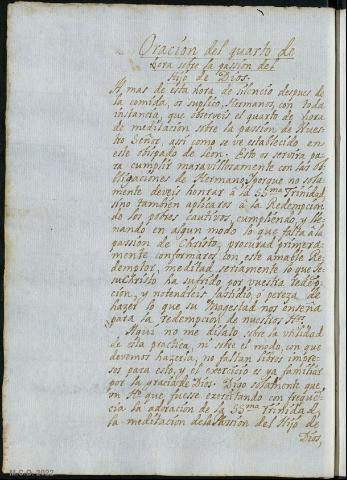 Oracion del quarto de
hora sobre la passion del
Hijo de Dios.
A mas de esta hora de silencio despues de
la comida, os suplico, Hermanos, con toda
instancia, que observeis el quarto de hora
de meditacion sobre la passion de Nues-
tro Señor, asi como se ve establecido en
este obispado de Leon. Esto os servira pa-
ra cumplir maravillosamente con las ob-
ligaciones de Hermanos; porque no sola-
mente deveis honrar à la SSma Trinidad,
sino tambien aplicaros à la Redempcion
de los pobres cautivos, cumpliendo, y lle-
nando en algun modo lo que falta à la
passion de Christo, procurad primera-
mente conformaros con este amable Re-
demptor, meditad seriamente lo que Je-
suChristo ha sufrido por vuestra redemp-
cion, y no tendreis fastidio, ò pereza de
hazer lo que su Magestad nos enseña
para la redempcion de nuestros Hos
Aqui no me dilato sobre la utilidad
de esta practica, ni sobre el modo, con que
devemos hazerla, no faltan libros impre-
sos para esto, y el exercicio es ya familiar
por la gracia de Dios. Digo solamente que
un Ho que fuese exercitando con frequē-
cia la adoracion de la SSma Trinidad, y
la meditacion de la Passion del Hijo de
Dios,
M.C.D. 2022